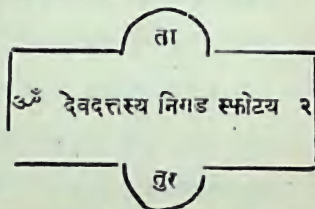 ता
ॐ देवदत्तस्य निगड स्फोटय २
तुर